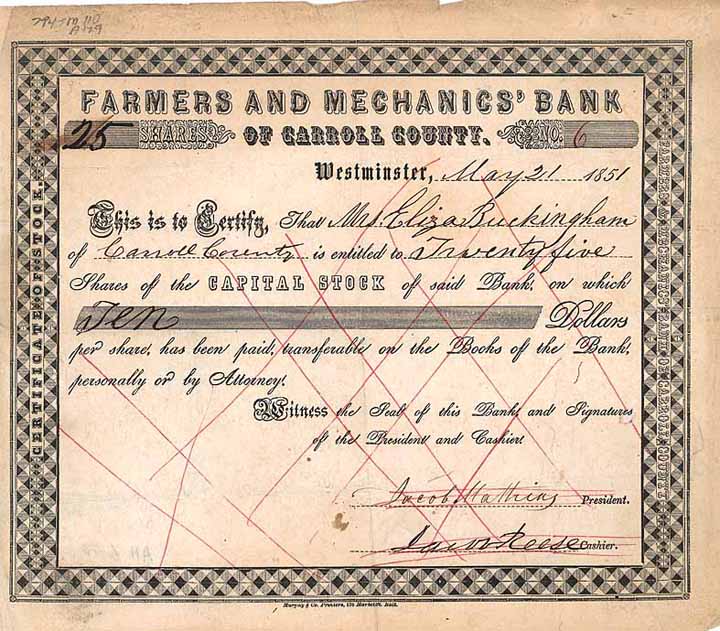 FARMERS AND MECHANICS' BANK
25 SHARES OF CARROLL COUNTY. NO. 6
Westminster, May 21 1851
This is to Certify, That Mrs. Eliza Buckingham
of Carroll County is entitled to Twenty five
Shares of the CAPITAL STOCK of said Bank, on which
Ten Dollars
per share, has been paid, transferable on the Books of the Bank,
personally or by Attorney.
Witness the Seal of this Bank and Signatures
of the President and Cashier.
Jacob Mathias President.
Jacob Reese Cashier.
CERTIFICATE OF STOCK.
FARMERS & MECHANICS BANK OF CARROLL COUNTY
Murphy & Co. Printers, 178 Market St. Balt.